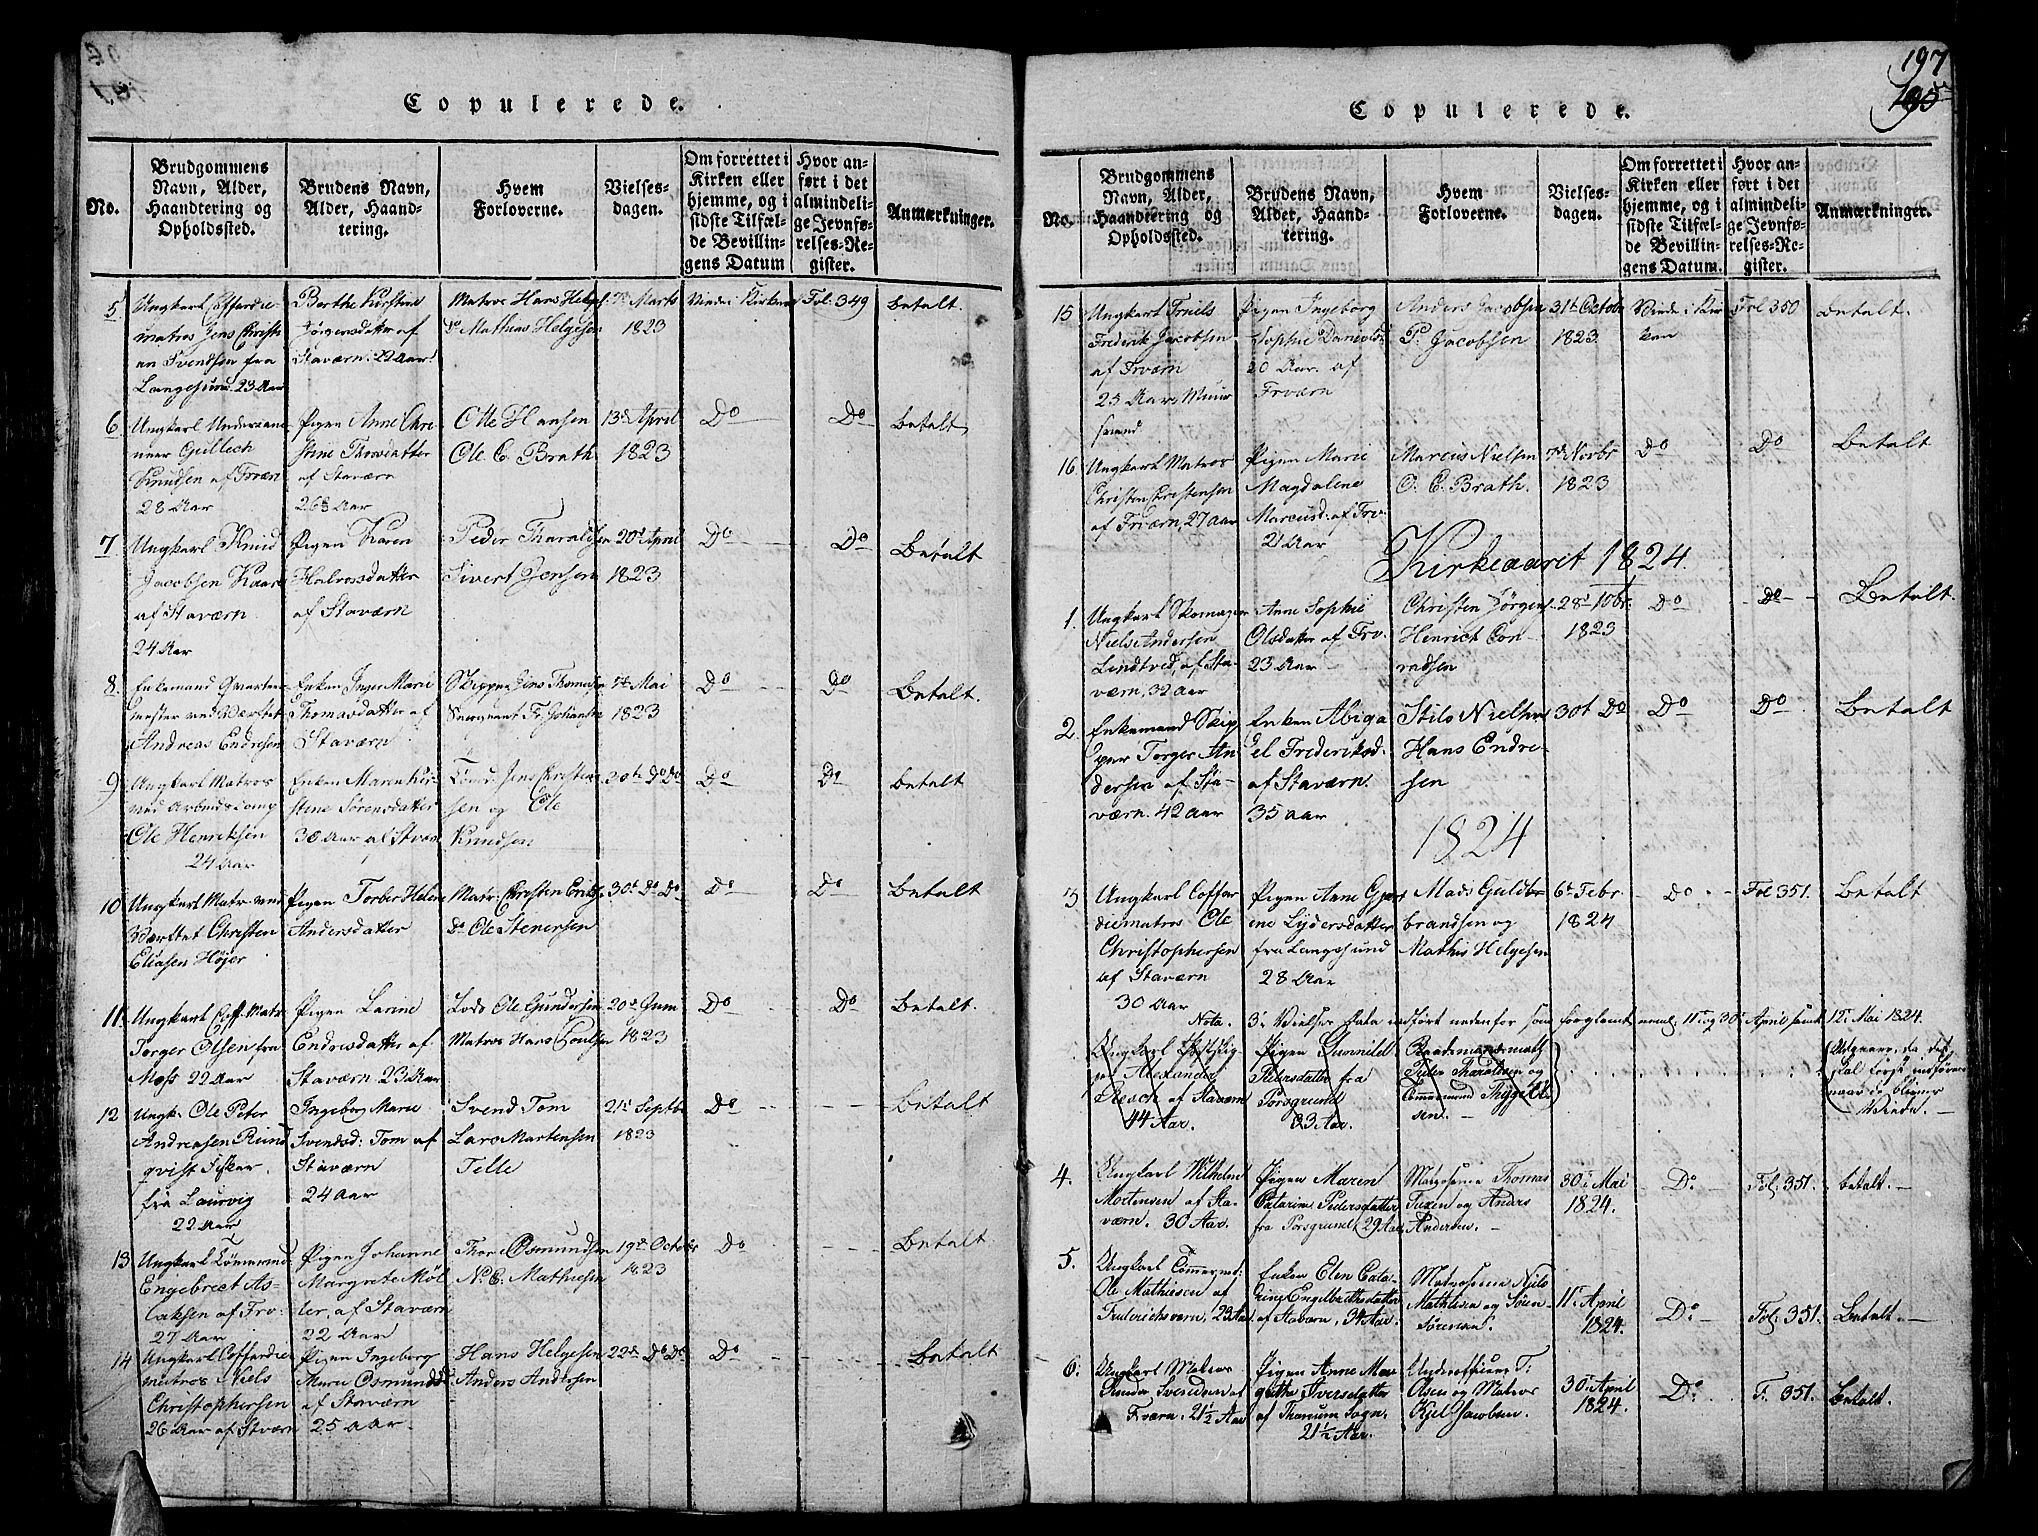 Copulerede.
No.
Brudgommens
Navn, Alder,
Haandtering og
Opholdssted.
Brudens Navn,
Alder, Haand-
tering.
Hvem
Forloverne.
Vielses-
dagen.
Om forrettet i
Kirken eller
hjemme, og i
sidste Tilfæl-
de Bevillin-
gens Datum
Hvor an-
ført i det
almindeli-
ge Jevnfø-
relses-Re-
gister.
Anmærkninger.
5
Ungkarl Cofferdie-
matros Jens Christi-
an Svendsen fra
Langesund. 23 Aar
Berthe Kirstine
Jørgensdatter af
Staværn. 22 Aar
Matros Hans Helges
Do Mathias Helgesen
7de Marts
1823
Viede i Kirken
Fol. 349
betalt.
6
Ungkarl
Gullich
Knudsen af Frværn
28 Aar
Pigen Anne Chri
stine Thorsdatter
af Staværn
26 Aar
Ole Hansen
Ole C. Brath
13de April
1823
Do
Do
betalt
7
Ungkarl Knud
Jacobsen Kaar
af Staværn
24 Aar
Pigen Karen
Halvorsdatter
af Staværn
Peder Tharaldsen
Sivert Jensen
20de April
1823
Do
Do
Betalt
8.
Enkemand Qvarteer-
mester ved Værftet
Andreas Endresen
Enken Inger Marie
Thomasdatter af
Staværn
Skipper Jens Thomasen
Sergeant Fr. Johansen
7de Mai
1823
Do
Do
Betalt.
9
Ungkarl Matros
ved Arbeidscomp
Ole Henriksen
24 Aar
Enken Maren Kir-
stine Sørensdatter
30 Aar af Staværn
Jens Christen
sen og Ole
Knudsen
30te Do Do
Do
Do
betalt
10
Ungkarl Matr. ved
Værftet Christen
Eliasen Højer
Pigen Torber Helene
Andersdatter
Matr. Christen Eriks.
Do Ole Stenersen
30t Do Do
Do
Do
betalt
11.
Ungkarl Coff. Matr.
Torger Olsen, fra
Moss 22 Aar
Pigen Larine
Endresdatter af
Staværn 23 Aar
Lods Ole Gundersen
Matros Hans Poulsen
20de Juni
1823
Do
Do
Betalt.
12
Ungk. Ole Peter
Andreasen Rund
qvist Fisker
fra Laurvig
22 Aar
Ingeborg Marie
Svendsd: Tom af
Staværn
24 Aar
Svend Tom
Lars Martensen
Telle
21de Septbr
1823
Do
Betalt
13
Ungkarl Tømmermd
Engebret As-
laksen af Frv.
27 Aar
Pigen Johanne
Margrete Møl
ler, af Staværn
22 Aar
Thor Osmundsen
N. C. Mathiesen
19de October
1823
Do
Betalt
14
Ungkarl Cofferdie-
matros Niels
Christophersen
26 Aar af Stværn
Pigen Ingeborg
Marie Osmundsd.
af Staværn
25 Aar.
Hans Helgesen
Anders Andersen
22de Do Do
Do
Betalt
197
195
Copulerede.
No.
Brudgommens
Navn, Alder,
Haandtering og
Opholdssted.
Brudens Navn,
Alder, Haand-
tering.
Hvem
Forloverne.
Vielses-
dagen.
Om forrettet i
Kirken eller
hjemme, og i
sidste Tilfæl-
de Bevillin-
gens Datum.
Hvor an-
ført i det
almindeli-
ge Jevnfø-
relses-Re-
gister.
Anmærkninger.
15
Ungkarl Truels
Frederik Jacobsen
af Frværn
25 Aar, Muur
svend
Pigen Ingeborg
Sophie Danielsd
20 Aar. af
Frværn
Anders Jacobsen
P. Jacobsen
31te October
1823
Viede i Kir
ken
Fol 350
Betalt.
16
Ungkarl Matros
Christen Christensen
af Frværn, 27 Aar
Pigen Marie
Magdalene
Marcusd. af Frv.
21 Aar
Marcus Nielsen
O. C. Brath.
7de Novbr
1823
Do
Do
Betalt
Kirkeaaret 1824.
1.
Ungkarl Skomager
Niels Andersen
Lindtved, af Sta-
værn, 32 Aar
Anne Sophie
Olsdatter af Frv.
23 Aar
Christen Jørgens.
Henrich Con-
radsen
28de 10br.
1823
Do
Do
Betalt.
2
Enkemand Skip
per Torger An
dersen af Sta-
værn. 42 Aar
Enken Abiga
el Frederiksd.
af Staværn.
35 Aar
Nielsen
Hans Endre-
sen
30t Do
Do
Do
Betalt
1824
3
Ungkarl Coffar
diematros Ole
Christophersen
af Staværn
30 Aar
Pigen Anne Gjer
ine Lydersdatter
fra Langesund
28 Aar
Mads Guldb-
brandsen og
Mathis Helgesen
6te Febr
1824
Do
Fol 351.
Betalt
Nota. 3de Vielser data indført nedenfor som forglemt neml. 11te og 30te April samt 12te Mai 1824.
Ungkarl
Alexander
af Staværn
44 Aar.
Pigen Gunnild
Pedersdatter fra
Porsgrund
33 Aar.
Baadsmandsmatt
Peder Tharaldsen og
Tømmermand Thygge Ol
sen.
Udgaaer, da det
skal først indføres
naar de bliver
Viede.
4.
Ungkarl Wilhelm
Mortensen af Sta-
værn. 30 Aar.
Pigen Maren
Catarine Pedersdatter
fra Porsgrund, 29 Aar
Matroserne Thomas
Tuxen og Anders
Andersen.
30te Mai
1824.
Do
Fol. 351.
betalt.
5.
Ungkarl Tømmermd:
Ole Mathiesen af
Friderichsværn, 23 Aar
Enken Elen Cata-
rine Engelbretsdatter
af Staværn, 34 Aar.
Matroserne Nils
Mathisen og Søren
Sørensen.
11te April
1824.
Do
Fol. 351.
Betalt.
6.
Ungkarl Matros
Gunder Svendsen af
Frværn. 21½ Aar
Pigen Anne Mar
grethe Iversdatter
af Thanum Sogn.
21½ Aar.
Underofficeer T.
Olsen og Matros
Kjel Jacobsen.
30te April
1824.
Do
F. 351.
Betalt.